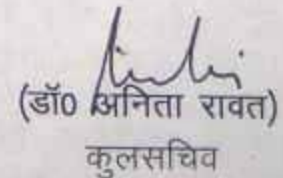 (डॉ0 अनिता रावत)
कुलसचिव